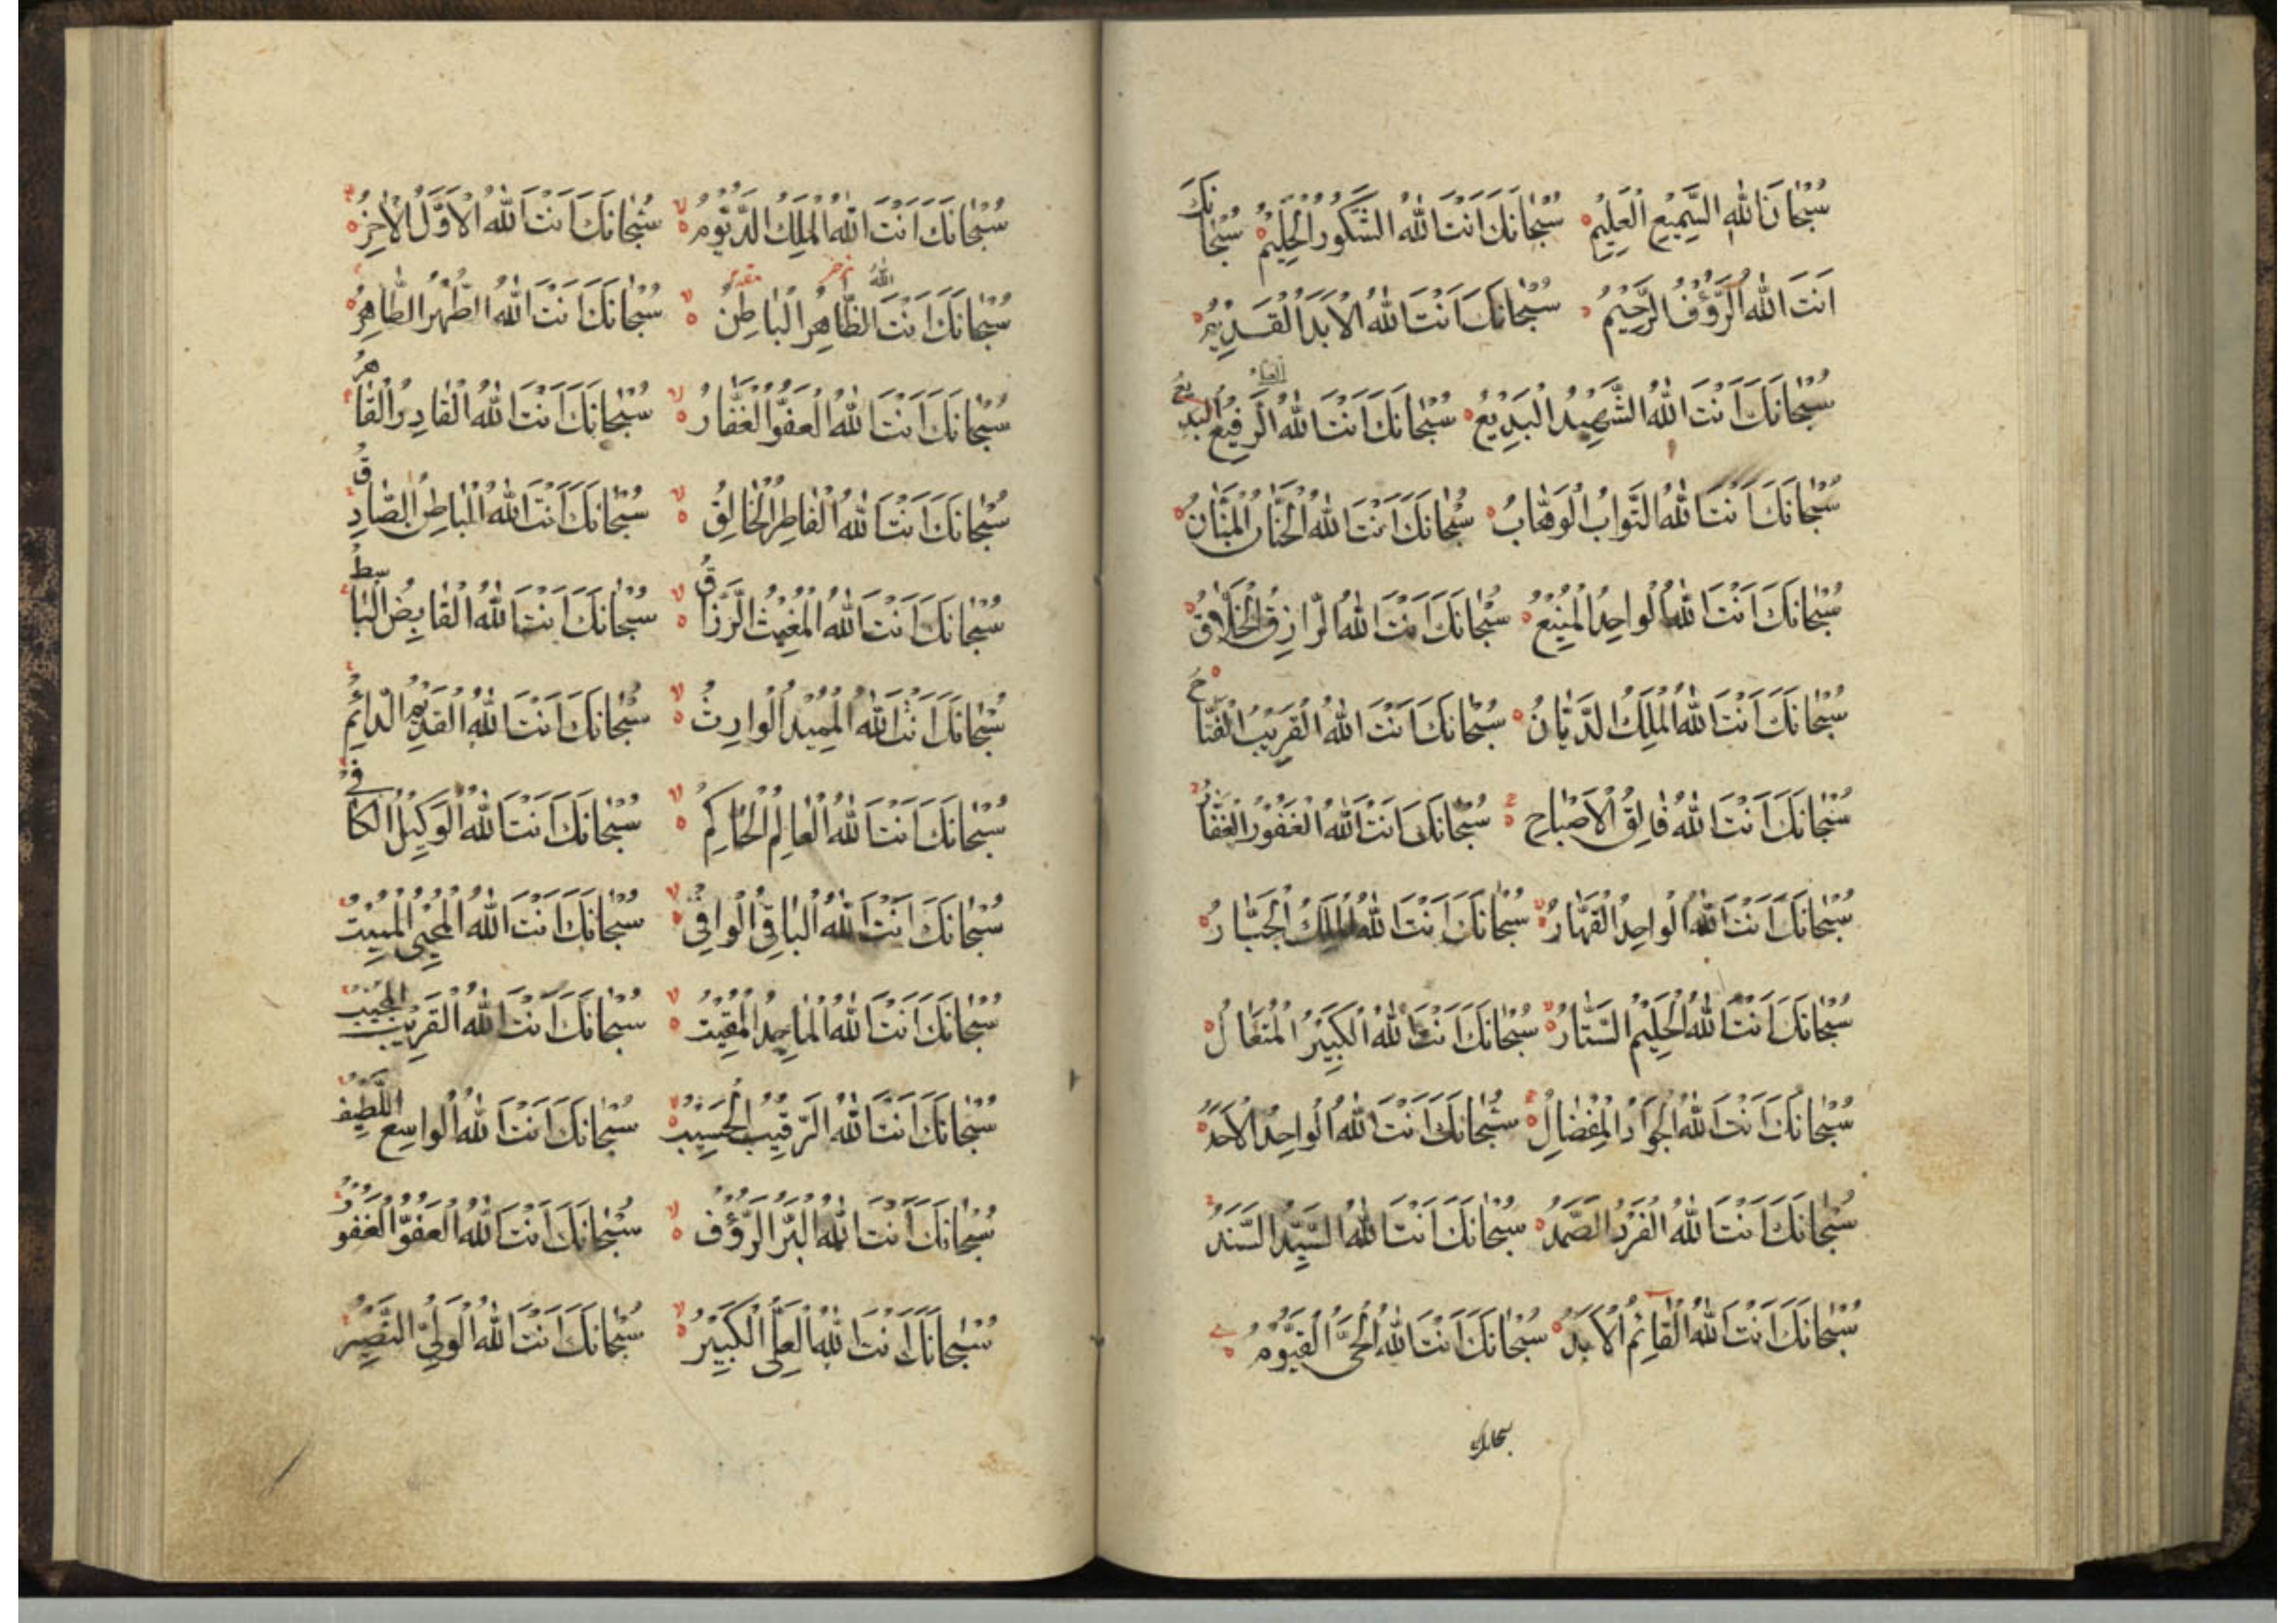 سُبْحَانَ اللهِ السَّمِيعِ الْعَلِيمِ سُبْحَانَكَ اَنْتَ اللهُ الشَّكُورُ الْحَلِيمُ سُبْحَانَكَ
اَنْتَ اللهُ الرَّؤُفُ الرَّحِيمُ سُبْحَانَكَ اَنْتَ اللهُ الْاَبَدُ الْقَدِيمُ
سُبْحَانَكَ اَنْتَ اللهُ الشَّهِيدُ الْبَدِيعُ سُبْحَانَكَ اَنْتَ اللهُ الرَّفِيعُ الْبَدِيعُ
سُبْحَانَكَ اَنْتَ اللهُ التَّوَابُ الْوَهَّابُ سُبْحَانَكَ اَنْتَ اللهُ الْحَنَّانُ الْمَنَّانُ
سُبْحَانَكَ اَنْتَ اللهُ الْوَاحِدُ الْمَنِيعُ سُبْحَانَكَ اَنْتَ اللهُ الرَّازِقُ الْخَلَّاقُ
سُبْحَانَكَ اَنْتَ اللهُ الْمَلِكُ الدَّيَّانُ سُبْحَانَكَ اَنْتَ اللهُ الْقَرِيبُ الْفَتَّاحُ
سُبْحَانَكَ اَنْتَ اللهُ فَالِقُ الْاَصْبَاحِ سُبْحَانَكَ اَنْتَ اللهُ الْغَفُورُ الْغَفَّارُ
سُبْحَانَكَ اَنْتَ اللهُ الْوَاحِدُ الْقَهَّارُ سُبْحَانَكَ اَنْتَ اللهُ الْمَلِكُ الْجَبَّارُ
سُبْحَانَكَ اَنْتَ اللهُ الْحَلِيمُ السَّتَّارُ سُبْحَانَكَ اَنْتَ اللهُ الْكَبِيرُ الْمُتَعَالُ
سُبْحَانَكَ اَنْتَ اللهُ الْجَوَادُ الْمِفْضَالِ سُبْحَانَكَ اَنْتَ اللهُ الْوَاحِدُ الْاَحَدُ
سُبْحَانَكَ اَنْتَ اللهُ الْفَرْدُ الصَّمَدُ سُبْحَانَكَ اَنْتَ اللهُ السَّيِّدُ السَّنَدُ
سُبْحَانَكَ اَنْتَ اللهُ الْقَائِمُ الْاَبَدُ سُبْحَانَكَ اَنْتَ اللهُ الْحَيُّ الْقَيُّومُ
سبحانك
سُبْحَانَكَ اَنْتَ اللهُ الْمَلِكُ الدَّيُّومُ سُبْحَانَكَ اَنْتَ اللهُ الْاَوَّلُ الْاٰخِرُ
سُبْحَانَكَ اَنْتَ اللهُ الظَّاهِرُ الْبَاطِنُ سُبْحَانَكَ اَنْتَ اللهُ الطُّهْرُ الطَّاهِرُ
سُبْحَانَكَ اَنْتَ اللهُ الْعَفُوُّ الْغَفَّارُ سُبْحَانَكَ اَنْتَ اللهُ الْقَادِرُ الْقَاهِرُ
سُبْحَانَكَ اَنْتَ اللهُ الْفَاطِرُ الْخَالِقُ سُبْحَانَكَ اَنْتَ اللهُ الْبَاطِنُ الصَّادِقُ
سُبْحَانَكَ اَنْتَ اللهُ الْمُغِيثُ الرَّزَّاقُ سُبْحَانَكَ اَنْتَ اللهُ الْقَابِضُ الْبَاسِطُ
سُبْحَانَكَ اَنْتَ اللهُ الْوَارِثُ سُبْحَانَكَ اَنْتَ اللهُ الْقَدِيمُ الدَّائِمُ
سُبْحَانَكَ اَنْتَ اللهُ الْعَالِمُ الْحَاكِمُ سُبْحَانَكَ اَنْتَ اللهُ الْوَكِيلُ الْكَافِي
سُبْحَانَكَ اَنْتَ اللهُ الْبَاقِي الْوَافِي سُبْحَانَكَ اَنْتَ اللهُ الْمُحْيِي الْمُمِيتُ
سُبْحَانَكَ اَنْتَ اللهُ الْمَاجِدُ الْمُقِيتُ سُبْحَانَكَ اَنْتَ اللهُ الْقَرِيبُ الْمُجِيبُ
سُبْحَانَكَ اَنْتَ اللهُ الرَّقِيبُ الْحَسِيبُ سُبْحَانَكَ اَنْتَ اللهُ الْوَاسِعُ اللَّطِيفُ
سُبْحَانَكَ اَنْتَ اللهُ الْبَرُّ الرَّؤُفُ سُبْحَانَكَ اَنْتَ اللهُ الْعَفُوُّ الْغَفُورُ
سُبْحَانَكَ اَنْتَ اللهُ الْعَلِيُّ الْكَبِيرُ سُبْحَانَكَ اَنْتَ اللهُ الْوَلِيُّ النَّصِيرُ